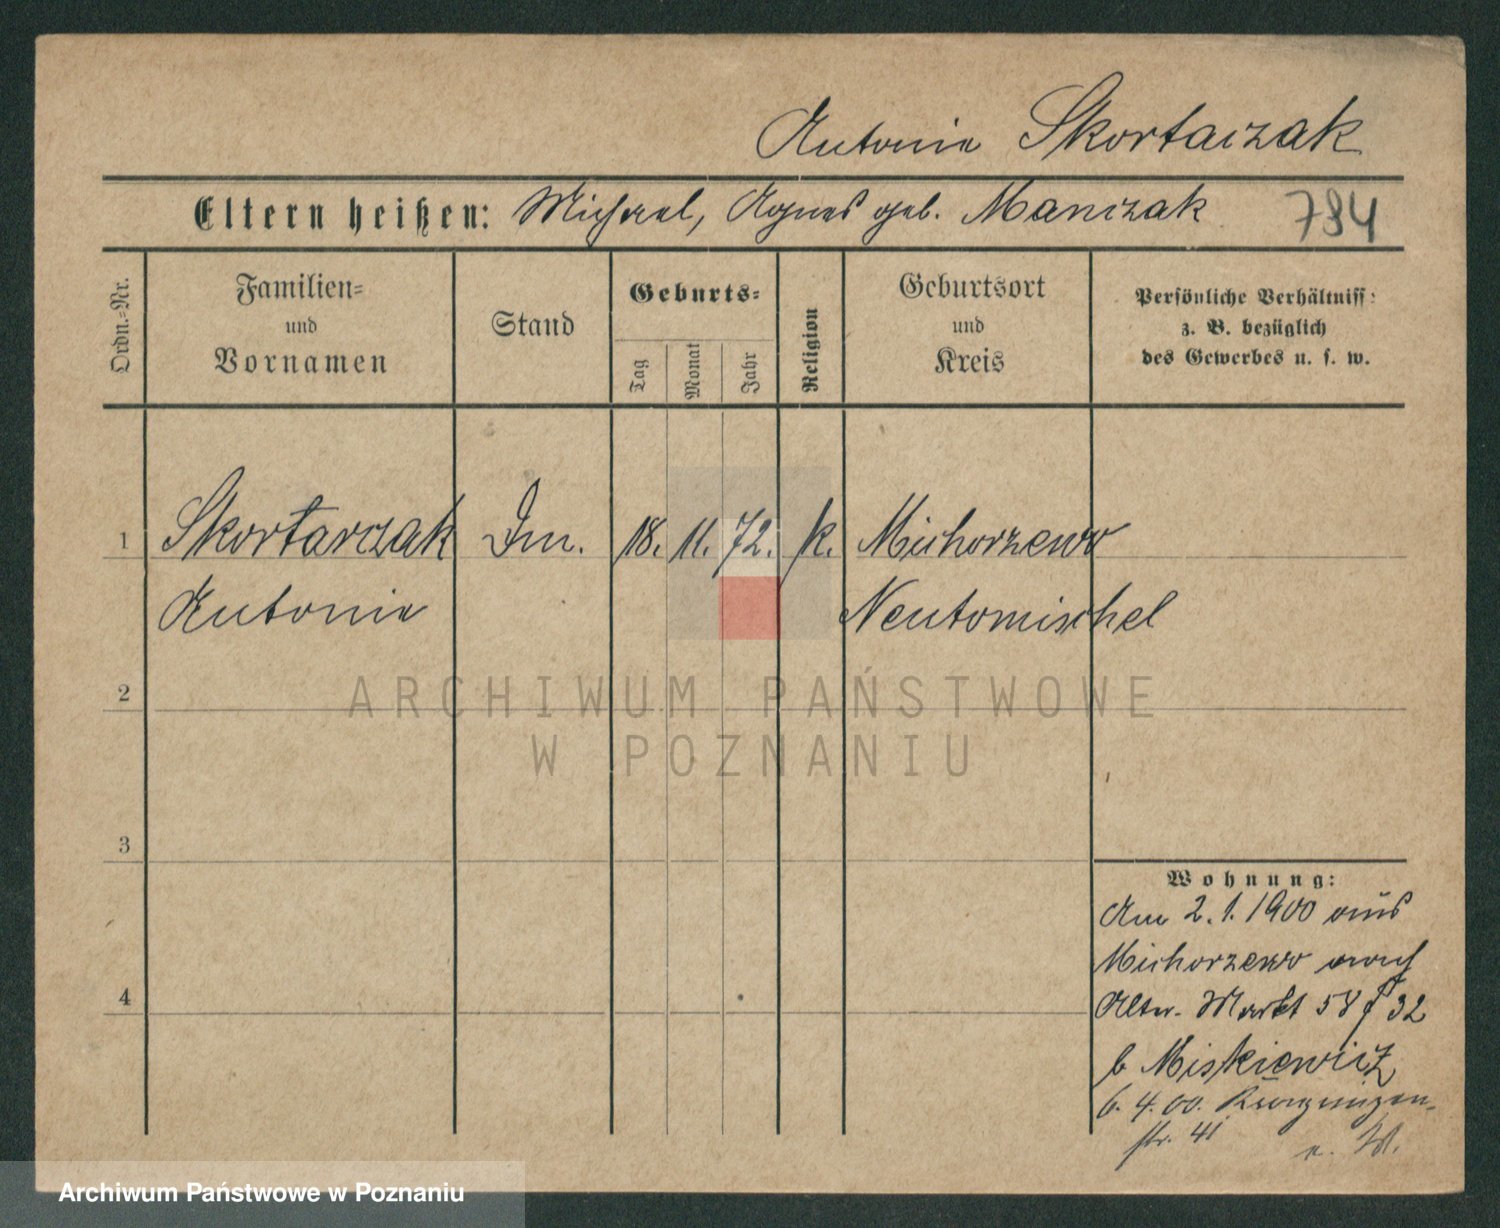 Antonie Skortarzak
Eltern heißen: Michael, Agnes geb. Manczak 784
Ordn.-Nr.
Familien-
und
Vornamen
Stand
Geburts-
Tag
Monat
Jahr
Religion
Geburtsort
und
Kreis
Persönliche Verhältniss:
z. B. bezüglich
des Gewerbes u. s. w.
1 Skortarczak 18. 11. 72. k. Michorzewo
Antonie Neutomischel
2
ARCHIWUM PAŃSTWOWE
W POZNANIU
3
Wohnung:
Am 2.1.1900 aus
Michorzewo nach
4
Alter Markt 58 32
b Miskiewicz
6. 4. 00.
str. 41
Archiwum Państwowe w Poznaniu